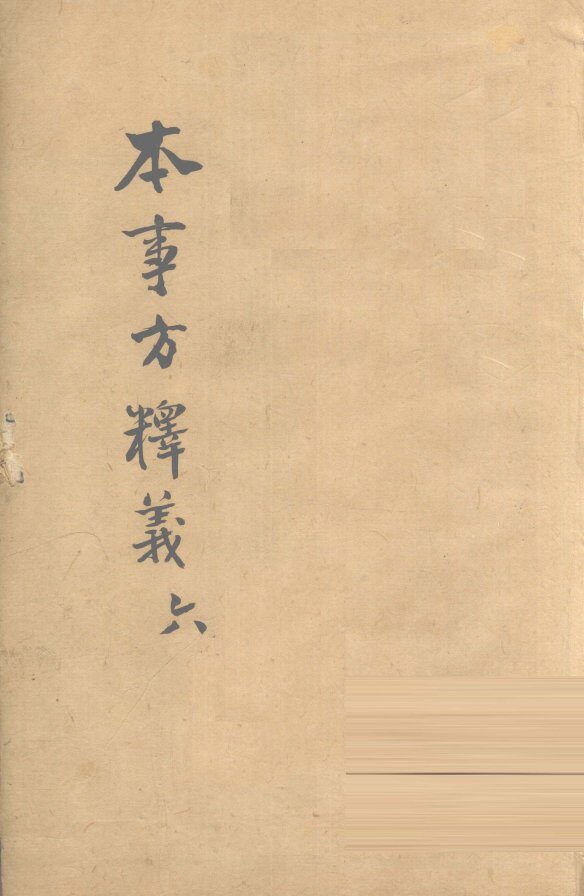 本事方釋義 六